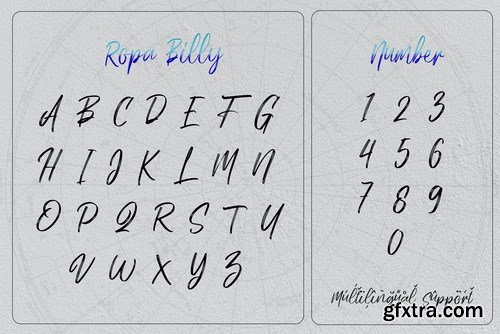 Ropa Billy
A B C D E F G
H I J K L M N
O P Q R S T U
V W X Y Z
Number
1 2 3
4 5 6
7 8 9
0
Múltilingual Support
gfxtra.com